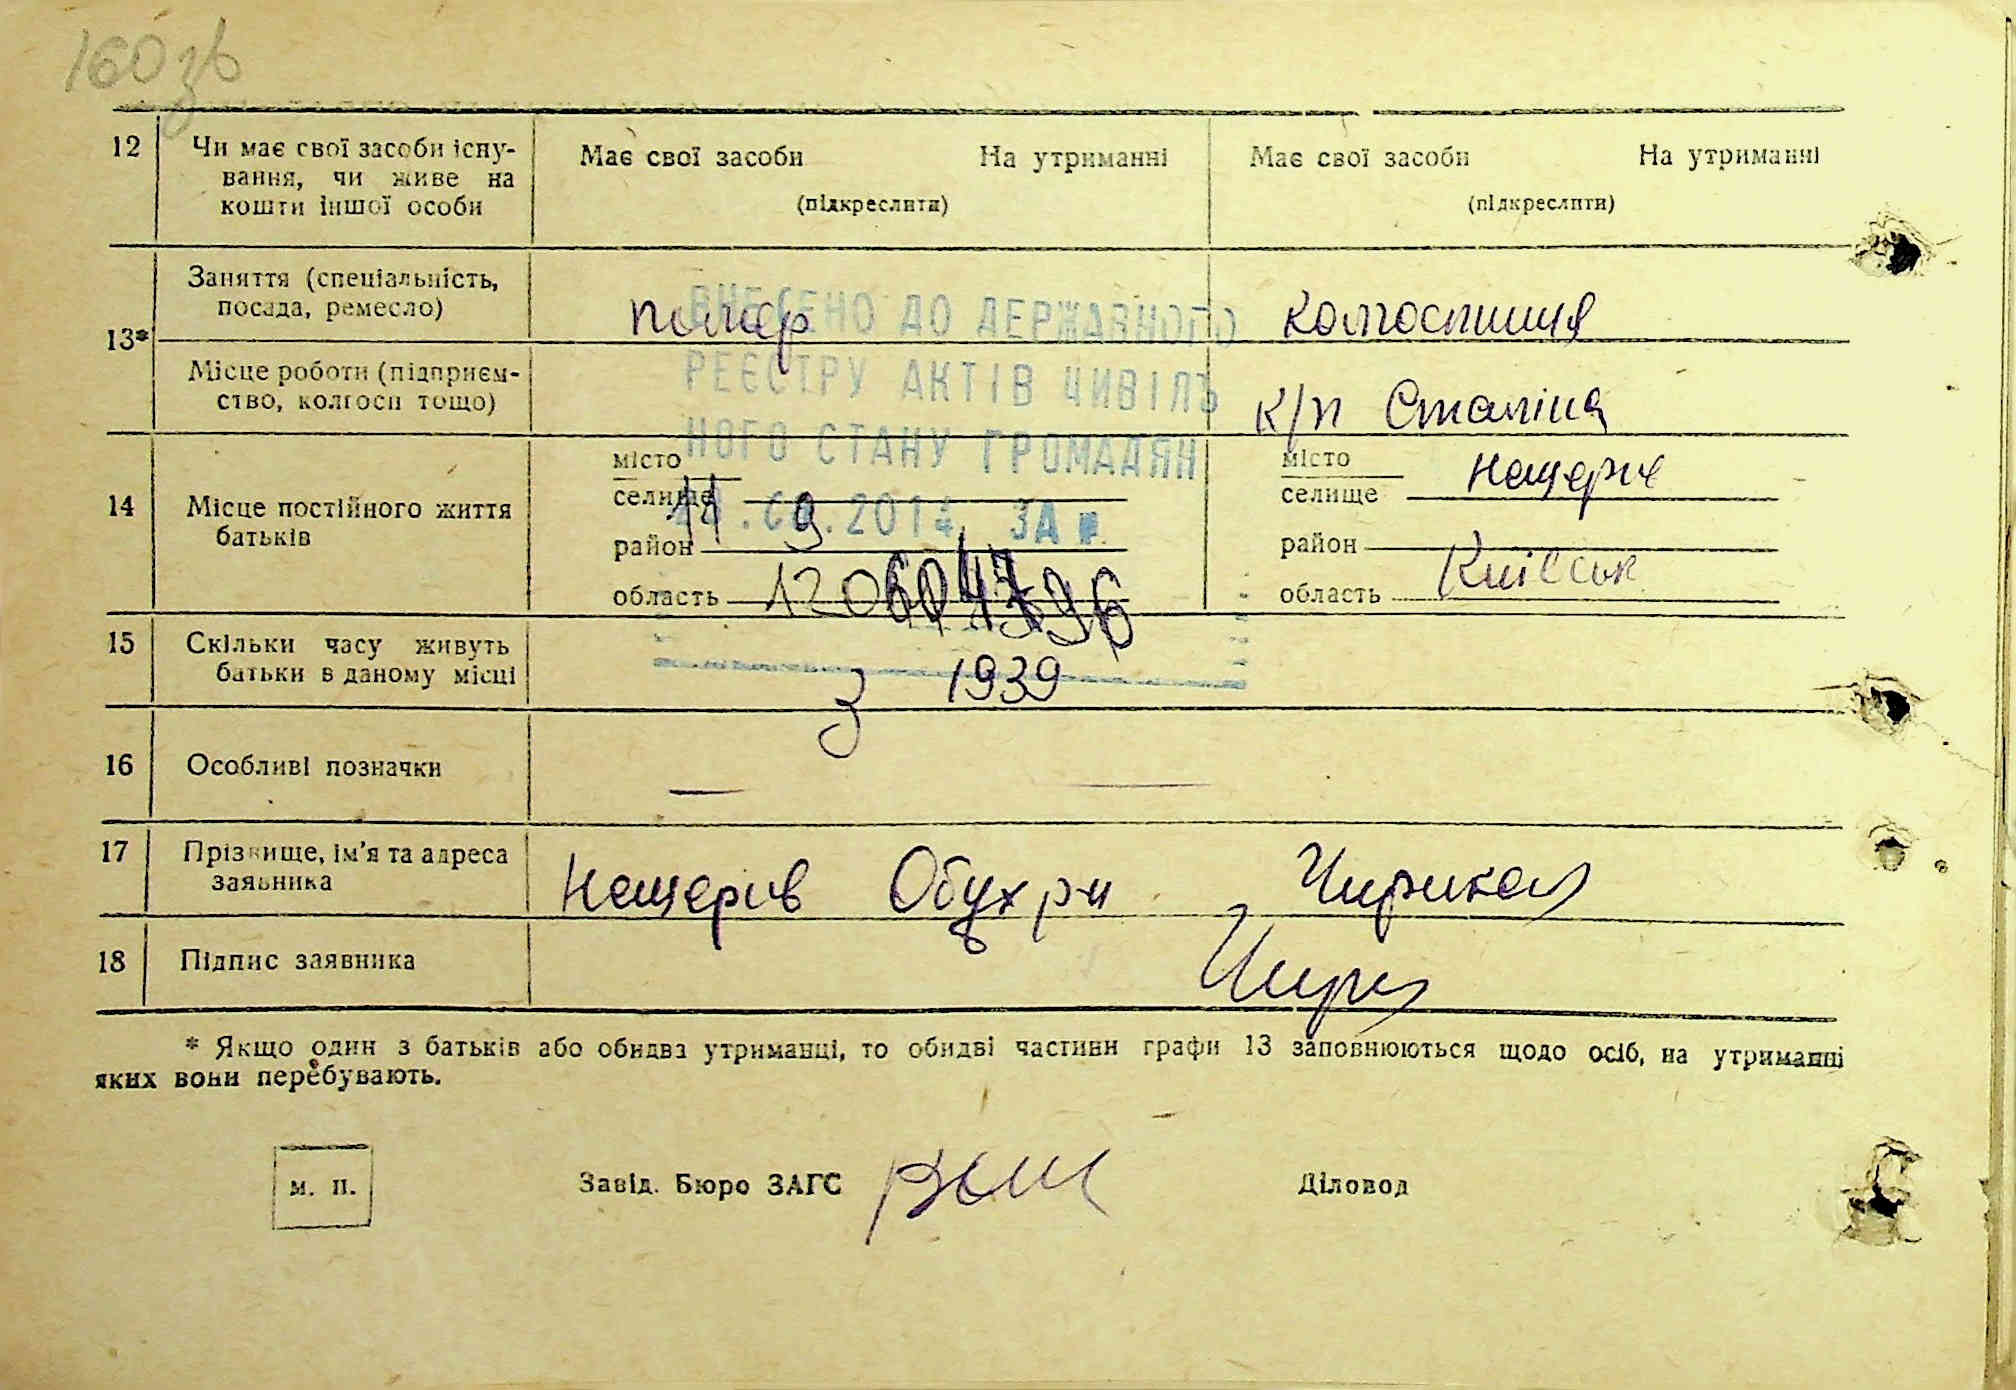 160 зв
12 Чи має свої засоби існу- Має свої засоби На утриманні Має свої засоби На утриманні
вання, чи живе на
кошти іншої особи (підкреслити) (підкреслити)
Заняття (спеціальність,
посада, ремесло) колгоспниця
ВНЕСЕНО ДО ДЕРЖАВНОГО
13*
Місце роботи (підприєм-
ство, колгосп тощо) к/п Сталіна
РЕЄСТРУ АКТІВ ЦИВІЛЬ
НОГО СТАНУ ГРОМАДЯН
14 Місце постійного життя
батьків
місто місто Нещерів
селище селище
.2014 ЗА №
район район
область область Київськ
15 Скільки часу живуть
батьки в даному місці з 1939
16 Особливі позначки — —
17 Прізвище, ім'я та адреса
заявника Нещерів Обух р-н
18 Підпис заявника
* Якщо один з батьків або обидва утриманці, то обидві частини графи 13 заповнюються щодо осіб, на утриманні
яких вони перебувають.
м. п. Завід. Бюро ЗАГС Діловод